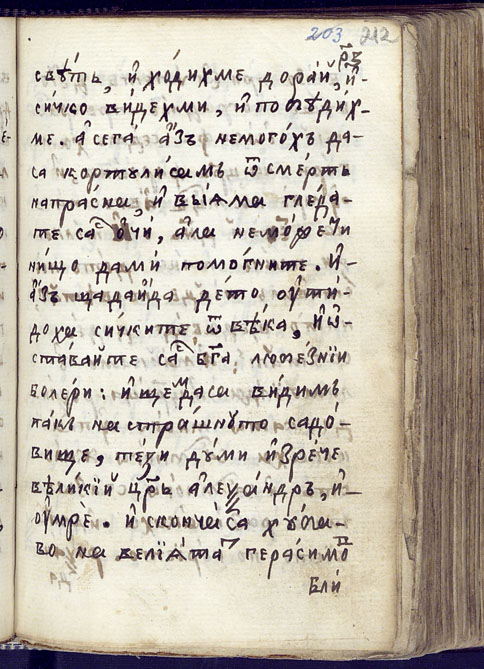 203 212
свѣ́тъ, и҆ ходи́хме дорай, и҆-
си́чко ви́дехми, и҆ похуди́х-
ме. а҆ сега̀ а҆зъ немого́хъ да-
са кортули́самъ ѿ сме́рть
напра́сна, и҆ выꙗма гле́да-
те са ѻ҆чи́, ала немо́жечи
ни́що дами̇̀ помо́гните. И҆-
а҆зъ щада и҆́да де́то ѹ҆ти-
до́ха си́чките ѿ вѣ́ка, и҆ ѡ҆-
ста́вайте са бг҃а, любе́знїи
боле́ри: и҆ ще да са ви́димъ
па́къ на стра́шното садо́-
вище, те́зи ду́ми и҆зре́че
вели́кїй цр҃ь а҆леѯа́ндръ, и҆-
ѹ҆мрѐ. и҆ сконча́ са ху́ба-
во на велїꙗта герасимо
бли́